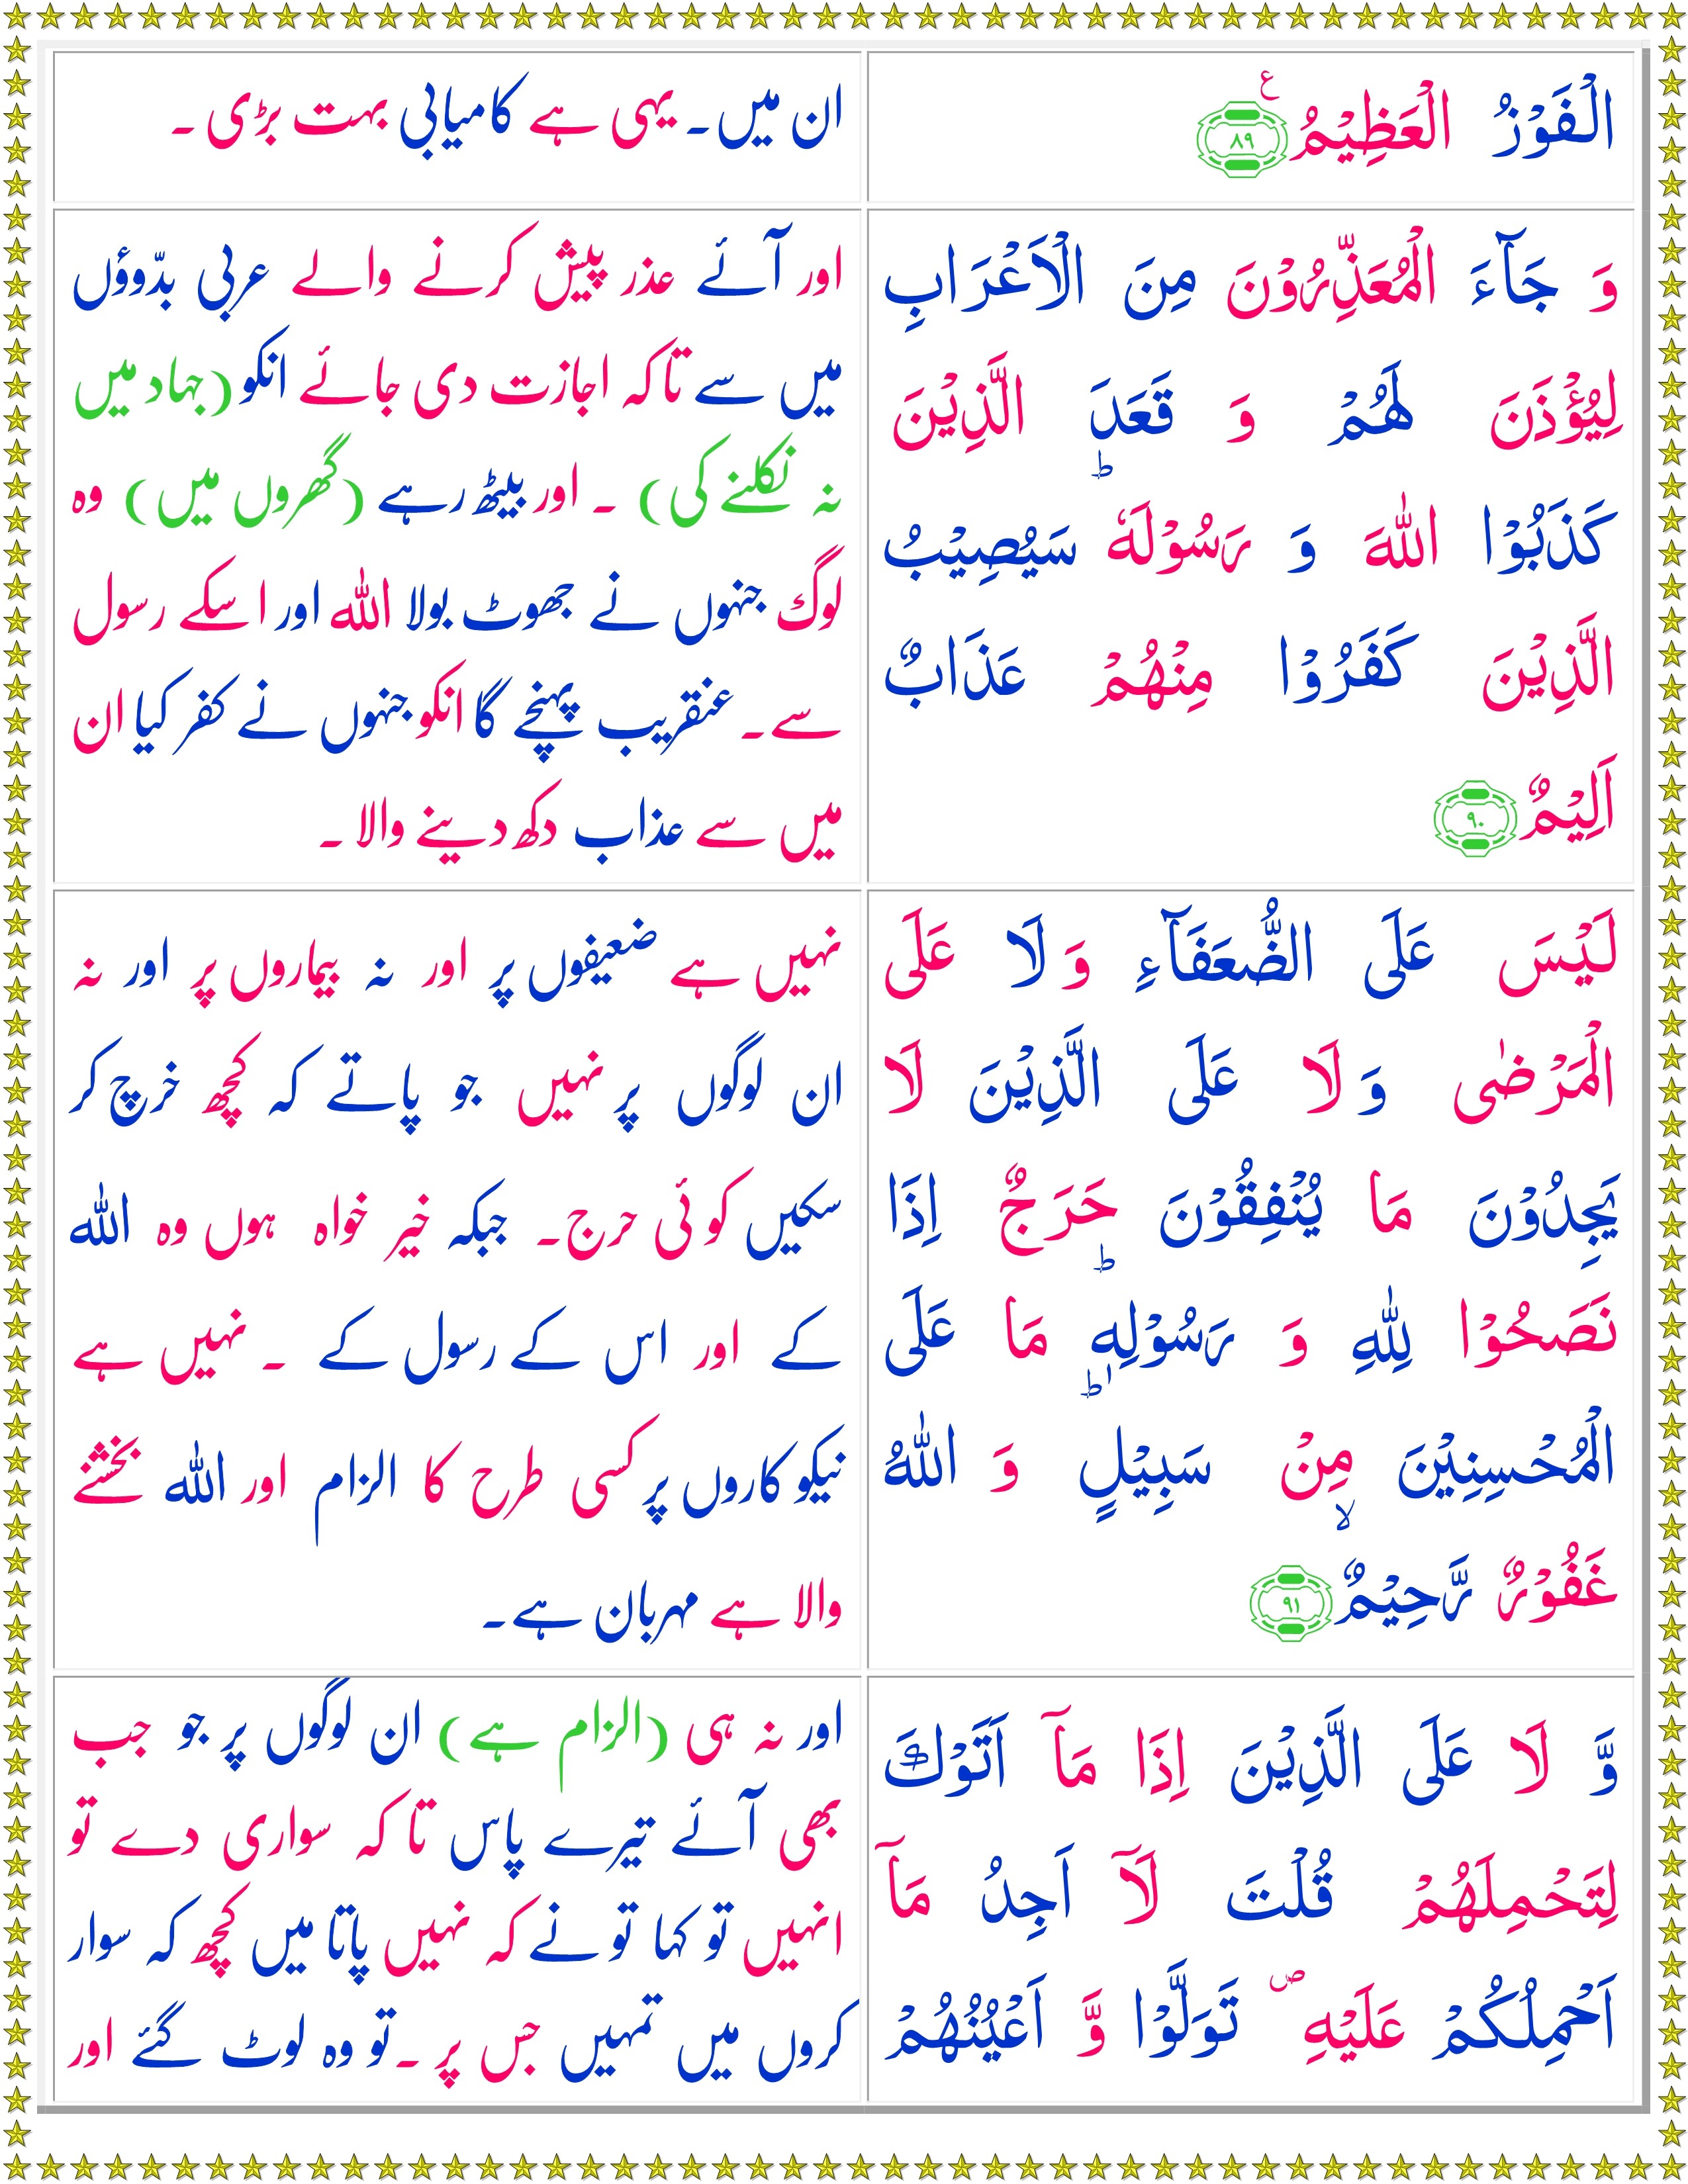 الْفَوْزُ الْعَظِيْمُ ع ۸۹
ان میں۔ یہی ہے کامیابی بہت بڑی ۔
وَ جَآءَ الْمُعَذِّرُوْنَ مِنَ الْاَعْرَابِ
لِيُؤْذَنَ لَهُمْ وَ قَعَدَ الَّذِيْنَ
كَذَبُوا اللّٰهَ وَ رَسُوْلَهٗ ؕ سَيُصِيْبُ
الَّذِيْنَ كَفَرُوْا مِنْهُمْ عَذَابٌ
اَلِيْمٌ ۹۰
اور آئے عذر پیش کرنے والے عربی بدّوؤں
میں سے تاکہ اجازت دی جائے انکو (جہاد میں
نہ نکلنے کی) ۔ اور بیٹھ رہے (گھروں میں) وہ
لوگ جنہوں نے جھوٹ بولا اللہ اور اسکے رسول
سے۔ عنقریب پہنچے گا انکو جنہوں نے کفر کیا ان
میں سے عذاب دکھ دینے والا۔
لَيْسَ عَلَى الضُّعَفَآءِ وَ لَا عَلَى
الْمَرْضٰى وَ لَا عَلَى الَّذِيْنَ لَا
يَجِدُوْنَ مَا يُنْفِقُوْنَ حَرَجٌ اِذَا
نَصَحُوْا لِلّٰهِ وَ رَسُوْلِهٖ ؕ مَا عَلَى
الْمُحْسِنِيْنَ مِنْ سَبِيْلٍ ؕ وَ اللّٰهُ
غَفُوْرٌ رَّحِيْمٌ ۙ ۹۱
نہیں ہے ضعیفوں پر اور نہ بیماروں پر اور نہ
ان لوگوں پر نہیں جو پاتے کہ کچھ خرچ کر
سکیں کوئی حرج۔ جبکہ خیر خواہ ہوں وہ اللہ
کے اور اس کے رسول کے ۔ نہیں ہے
نیکو کاروں پر کسی طرح کا الزام اور اللہ بخشنے
والا ہے مہربان ہے۔
وَّ لَا عَلَى الَّذِيْنَ اِذَا مَاۤ اَتَوْكَ
لِتَحْمِلَهُمْ قُلْتَ لَاۤ اَجِدُ مَاۤ
اَحْمِلُكُمْ عَلَيْهِ ص تَوَلَّوْا وَّ اَعْيُنُهُمْ
اور نہ ہی (الزام ہے) ان لوگوں پر جو جب
بھی آئے تیرے پاس تاکہ سواری دے تو
انہیں تو کہا تو نے کہ نہیں پاتا میں کچھ کہ سوار
کروں میں تمہیں جس پر ۔ تو وہ لوٹ گئے اور